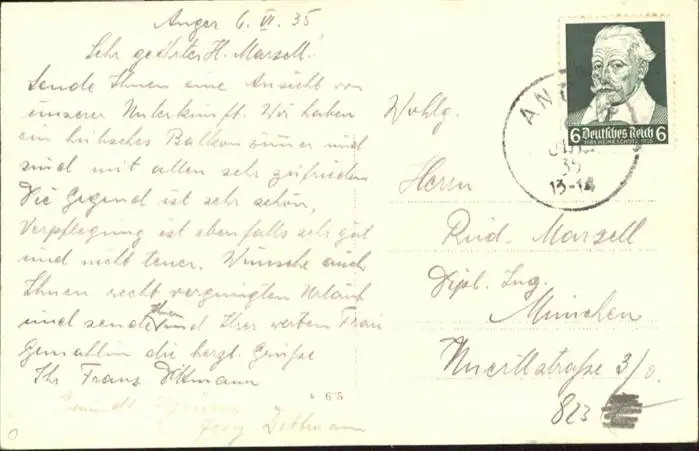 Anger 6. VI. 35
Sehr geehrter H. Marzell!
Sende Ihnen eine Ansicht von
unserer Unterkunft. Wir haben
ein hübsches Balkonzimmer und
sind mit allen sehr zufrieden
Die Gegend ist sehr schön,
Verpflegung ist ebenfalls sehr gut
und nicht teuer. Wünsche auch
Ihnen recht vergnügten Urlaub
und sende Ihnen und Ihrer werten Frau
Gemahlin die herzl. Grüße
Ihr Franz Dittmann
Grüße
Dittmann
* 65
Wohlg.
Herrn
Rud. Marzell
Dipl. Ing.
München
3/0.
823
6 Deutsches Reich 6
1585 HEINR. SCHÜTZ 1935
35
13-14